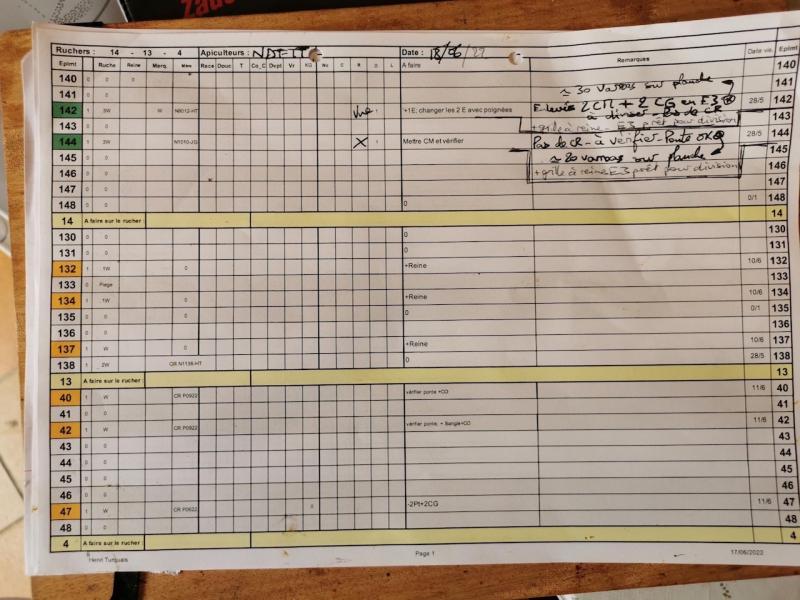 Zaue
Ruchers : 14 - 13 - 4 Apiculteurs : Date : 18/06/22
Epimt Ruche Reine Marq. Mère Race Douc T Co_C Dvpt Vr KG Nu C R D L A faire Remarques Date vis. Epimt
140 0 0 0 140
≃ 30 varroas sur planche
141 0 0 141
142 1 3W W N8012-HT Vue +1E; changer les 2 E avec poignées Enlevés 2 CM + 2 CG en E3 28/5 142
à diviser - Pas de CR
143 0 0 +grille à reine - E3 prêt pour division 143
144 1 3W N1010-JG X Mettre CM et vérifier Pas de CR - à vérifier - Ponte OK 28/5 144
145 0 0 ≃ 20 varroas sur planche 145
146 0 0 +grille à reine E3 prêt pour division 146
147 0 0 147
148 0 0 0 0/1 148
14 A faire sur le rucher : 14
130 0 0 0 130
131 0 0 0 131
132 1 1W 0 +Reine 10/6 132
133 0 Piege 133
134 1 1W 0 +Reine 10/6 134
135 0 0 0 0/1 135
136 0 0 136
137 1 W 0 +Reine 10/6 137
138 1 2W CR N1136-HT 0 28/5 138
13 A faire sur le rucher : 13
40 1 W CR P0922 vérifier ponte +CG 11/6 40
41 0 0 41
42 1 W CR P0922 vérifier ponte, + Sangle+CG 11/6 42
43 0 0 43
44 0 0 44
45 0 0 45
46 0 0 46
47 1 W CR P0622 -2Pt+2CG 11/6 47
48 0 0 48
4 A faire sur le rucher : 4
Henri Turquais Page 1 17/06/2022